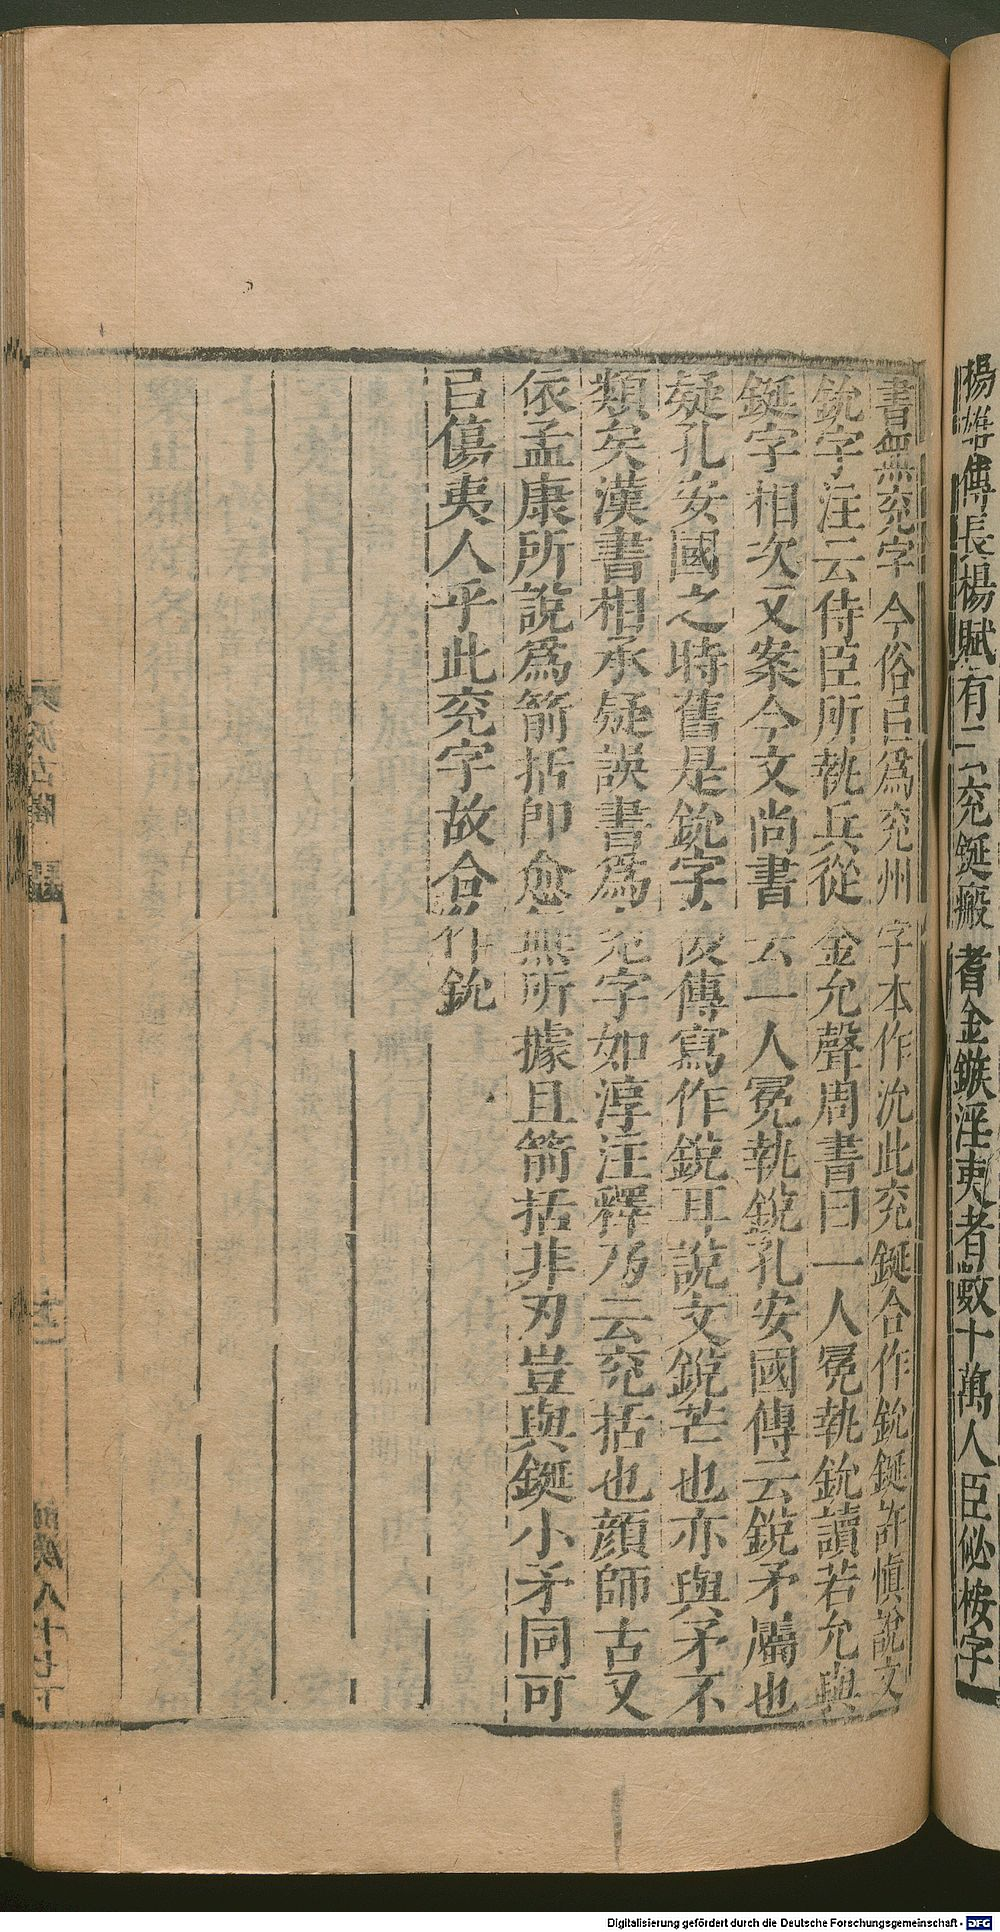 楊雄傳長楊賦有二兖鋋瘢耆金鏃淫夷者數十萬人臣佖桉字
書無兖字今俗㠯爲兖州字本作沇此兖鋋合作鈗鋋許慎說文
鈗字注云侍臣所執兵從金允聲周書曰一人冕執鈗讀若允與
鋋字相次又案今文尚書云一人冕執銳孔安國傳云銳矛屬也
疑孔安國之時舊是鈗字後傳寫作銳耳說文銳芒也亦與矛不
類矣漢書相承疑誤書爲兖字如淳注釋乃云兖括也顔師古又
依孟康所說爲箭括即愈無所據且箭括非刃豈與鋋小矛同可
㠯傷夷人乎此兖字故合作鈗
八十七下
Digitalisierung gefördert durch die Deutsche Forschungsgemeinschaft - DFG